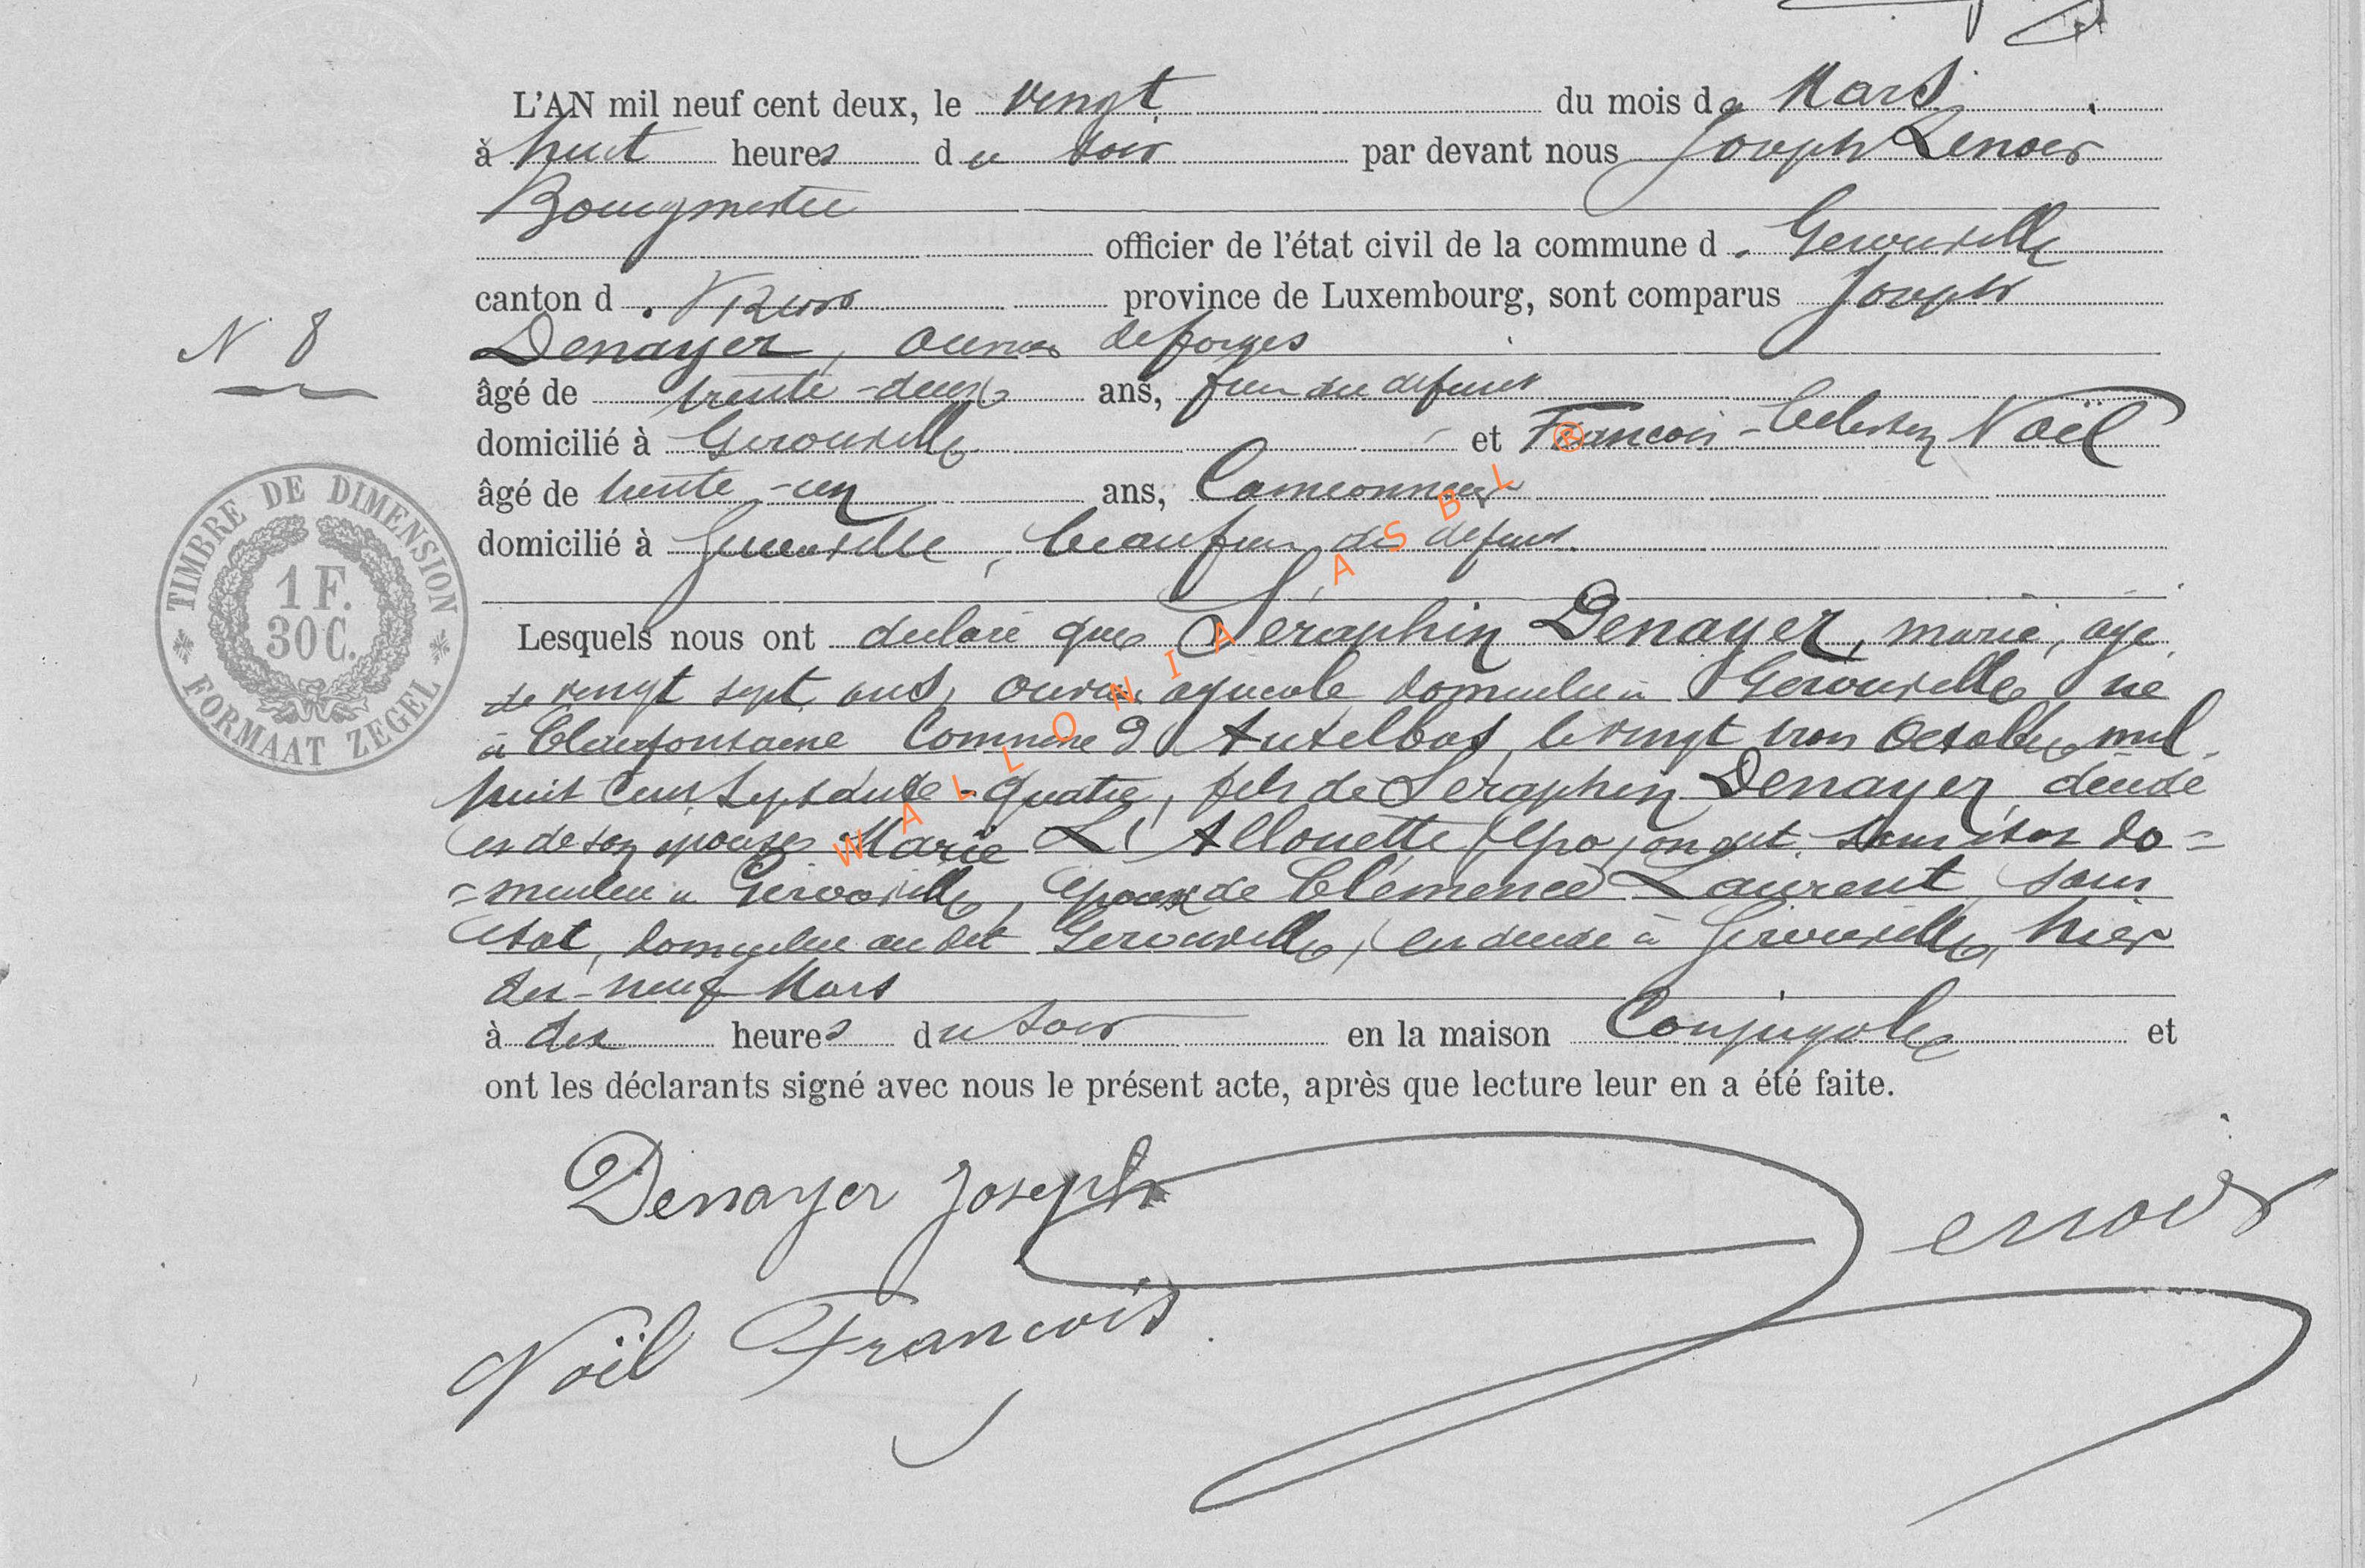 L'AN mil neuf cent deux, le vingt du mois de Mars
à huit heures du soir par devant nous Joseph Lenoir
Bourgmestre
officier de l'état civil de la commune d. Gerouville
canton d. Virton province de Luxembourg, sont comparus Joseph
N 8
Denayer, ouvrier de forges
âgé de trente-deux ans, frere du defunt
domicilié à Gerouville et François-Celestin Noël
âgé de trente-un ans, Camionneur
domicilié à Gerouville, beaufrere du defunt.
TIMBRE DE DIMENSION
1 F.
30 C.
FORMAAT ZEGEL
Lesquels nous ont declaré que Séraphin Denayer, marié, agé
de vingt sept ans, ouvrier agricole domicilié à Gerouville, né
à Clairefontaine Commune d'Autelbas, le vingt trois Octobre mil
huit cent septante-quatre, fils de Seraphin Denayer, décédé
et de son epouse Marie L'Allouette sans état do=
=miciliée à Gerouville, epoux de Clémence Laurent, sans
état, domiciliée au dit Gerouville, est décédé à Gerouville, hier
dix-neuf Mars
à dix heures du soir en la maison Conjugale et
ont les déclarants signé avec nous le présent acte, après que lecture leur en a été faite.
Denayer Joseph
Lenoir
Noël François
WALLONIA ASBL ®